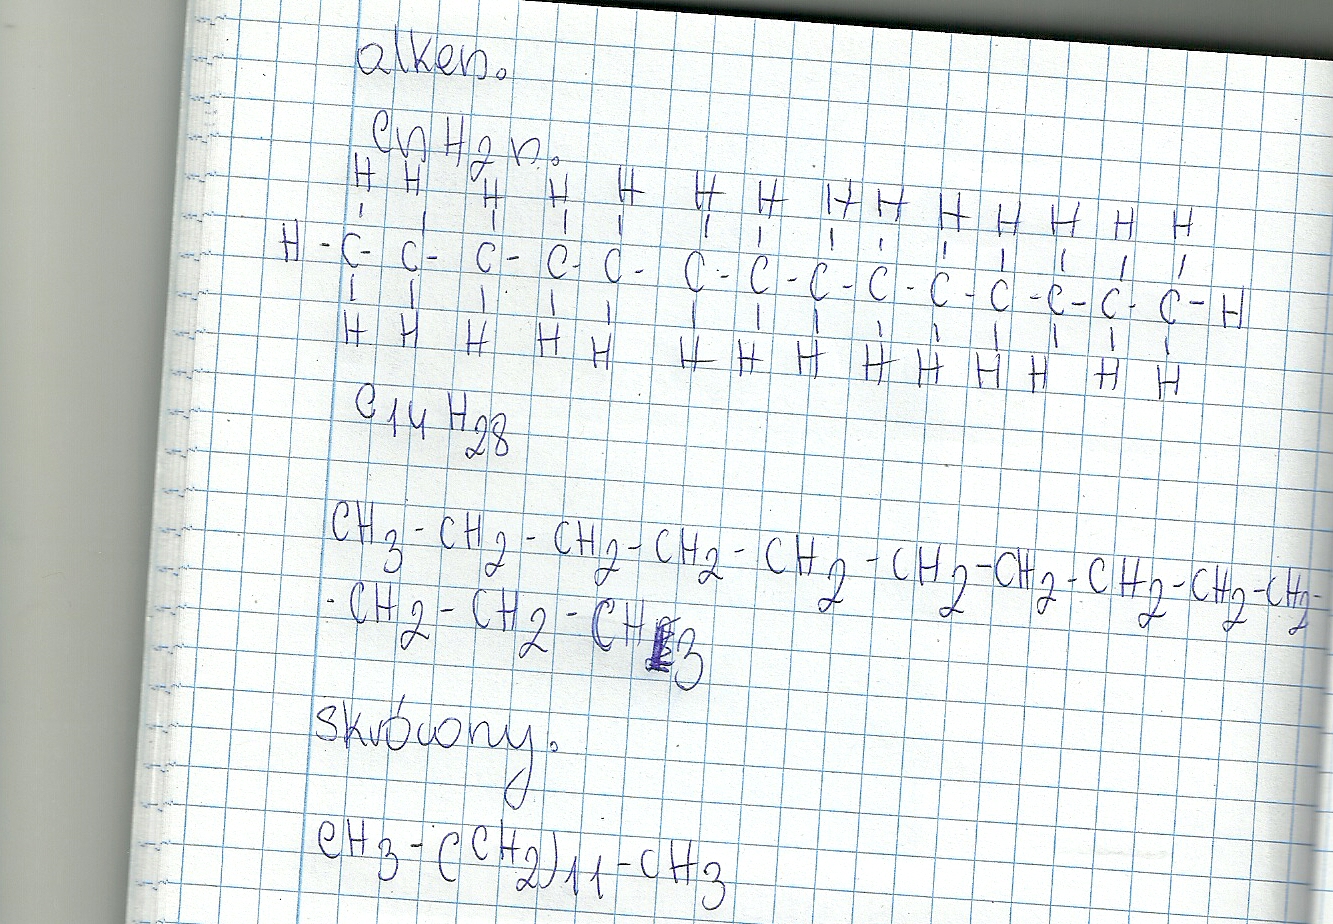 alken.
CnH2n.
H H H H H H H H H H H H H H
H - C - C - C - C - C - C - C - C - C - C - C - C - C - C - H
H H H H H H H H H H H H H H
C14H28
CH3 - CH2 - CH2 - CH2 - CH2 - CH2 - CH2 - CH2 - CH2 - CH2 -
- CH2 - CH2 - CH3
skrócony.
CH3 - (CH2)11 - CH3